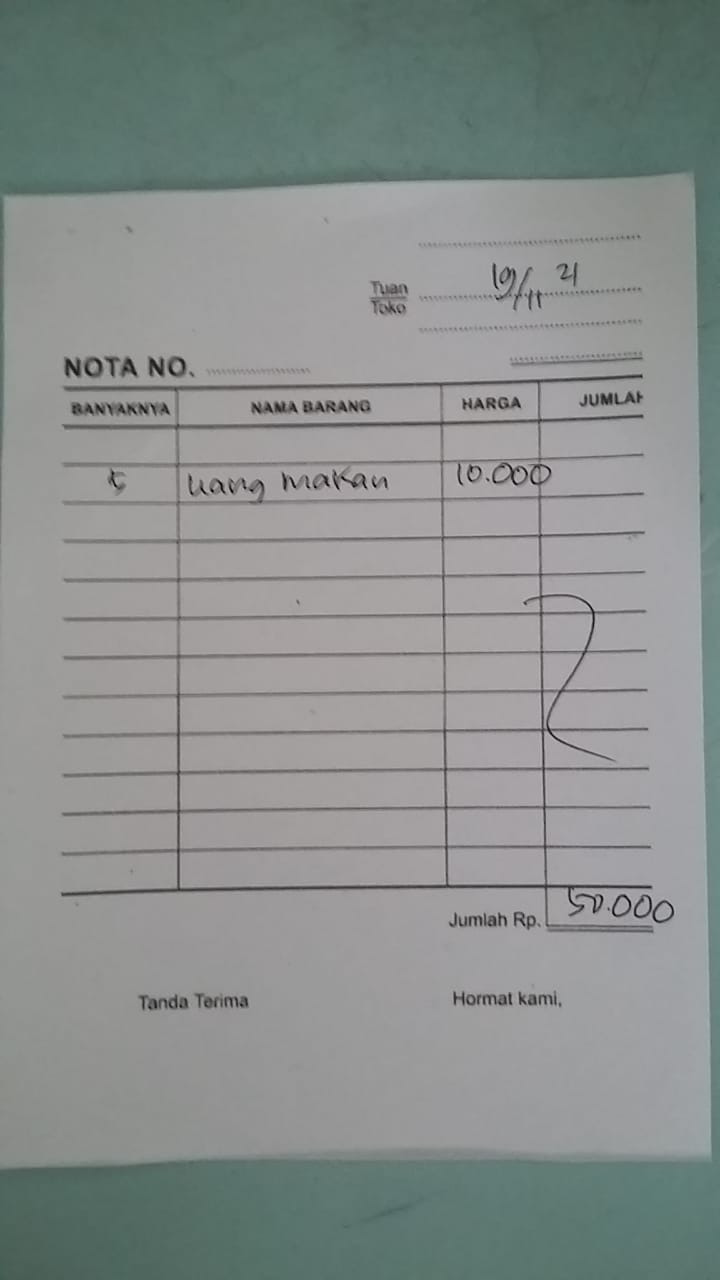 19/11 21
Tuan
Toko
NOTA NO.
BANYAKNYA NAMA BARANG HARGA JUMLAH
5 uang makan 10.000
Jumlah Rp. 50.000
Tanda Terima Hormat kami,